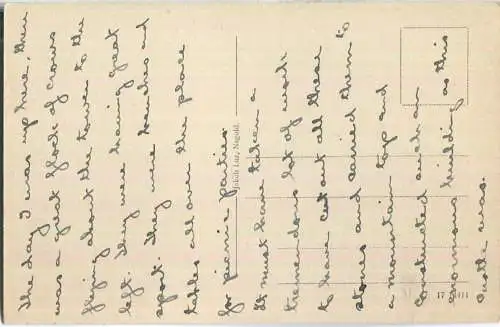 The day I was up here, there
was a great flock of crows
flying about the tower to the
left. They were having great
sport. They were benches and
tables all over the place
for picnic parties.
Jakob Luz, Nagold.
It must have taken a
tremendous lot of work
to have cut out all these
stones and carried them to
a mountain top and
constructed such an
enormous building as this
castle was.
17